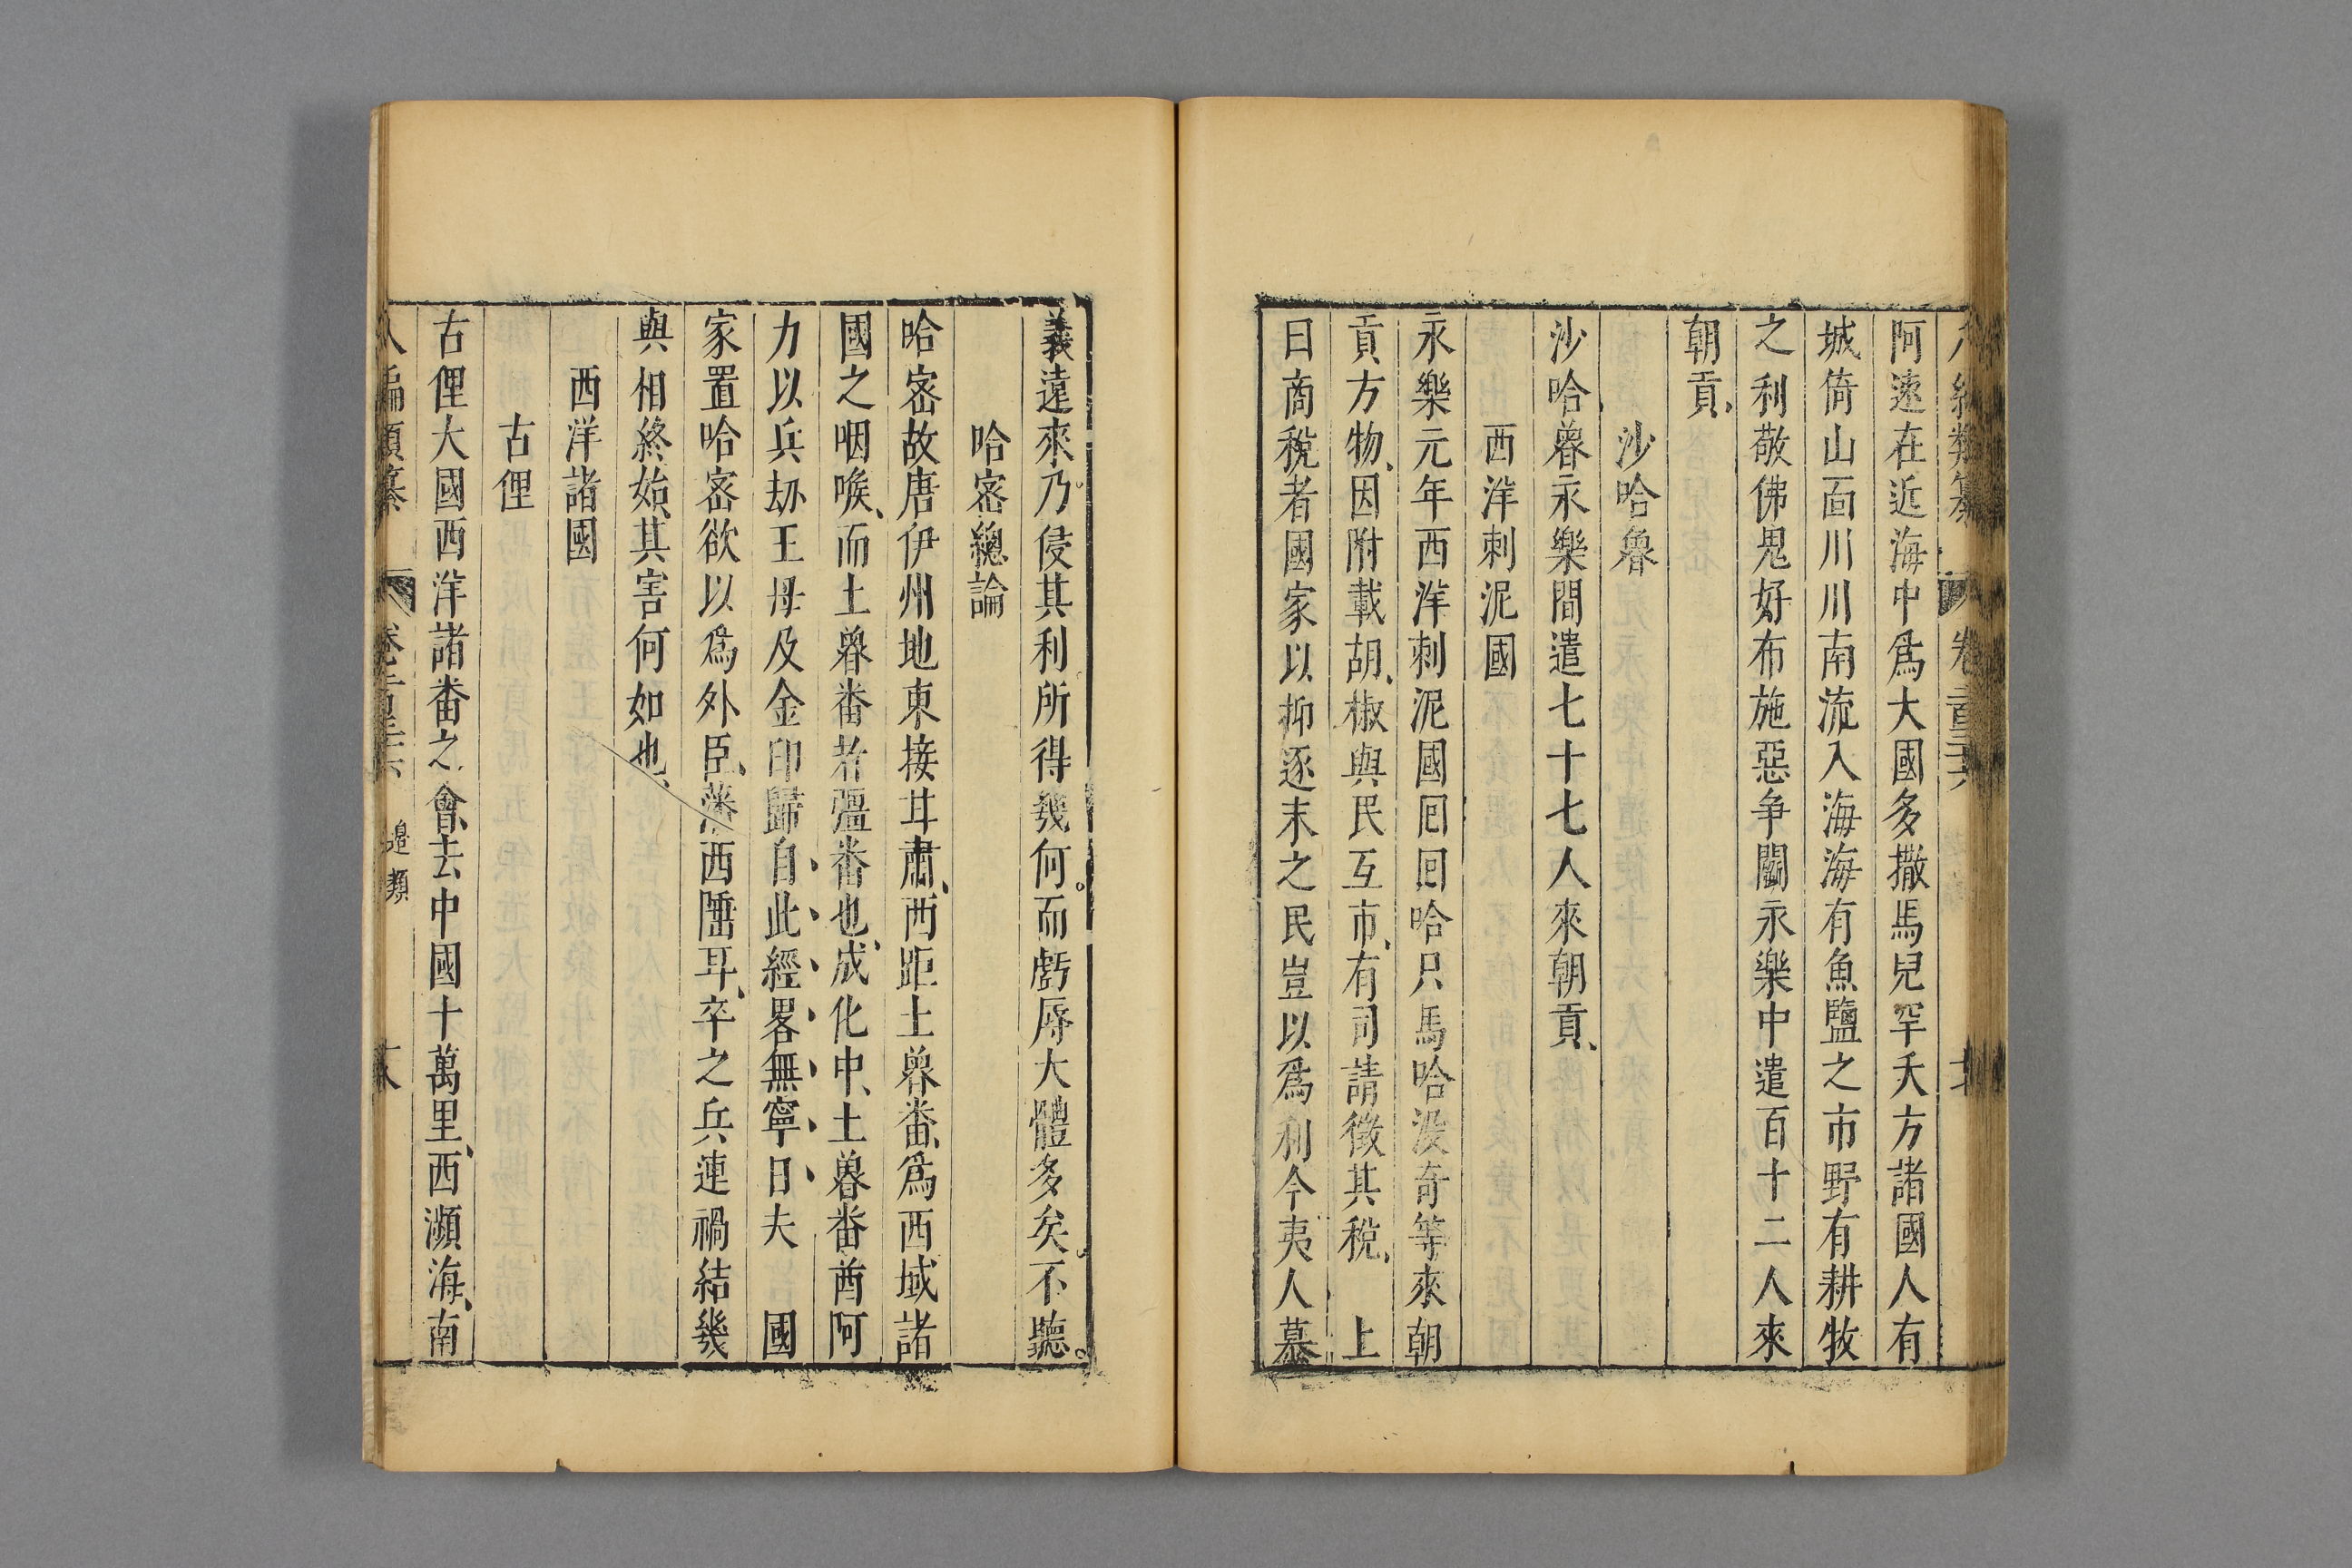 八編類纂 卷二百三六
阿速在近海中爲大國多撒馬兒罕天方諸國人有
城倚山面川川南流入海海有魚鹽之市野有耕牧
之利敬佛鬼好布施惡争鬬永樂中遣百十二人來
朝貢
沙哈魯
沙哈魯永樂間遣七十七人來朝貢
西洋剌泥國
永樂元年西洋剌泥國囘囘哈只馬哈没奇等來朝
貢方物因附載胡椒與民互市有司請徵其稅 上
曰商稅者國家以抑逐末之民豈以爲利今夷人慕
義遠來乃侵其利所得幾何而虧辱大體多矣不聽
哈密總論
哈密故唐伊州地東接甘肅西距土魯番爲西域諸
國之咽喉而土魯番者彊番也成化中土魯番酋阿
力以兵刼王母及金印歸自此經畧無寧日夫 國
家置哈密欲以爲外臣藩西陲耳卒之兵連禍結幾
與相終始其害何如也
西洋諸國
古俚
古俚大國西洋諸番之會去中國十萬里西瀕海南
八編類纂 卷二百三六 邊類